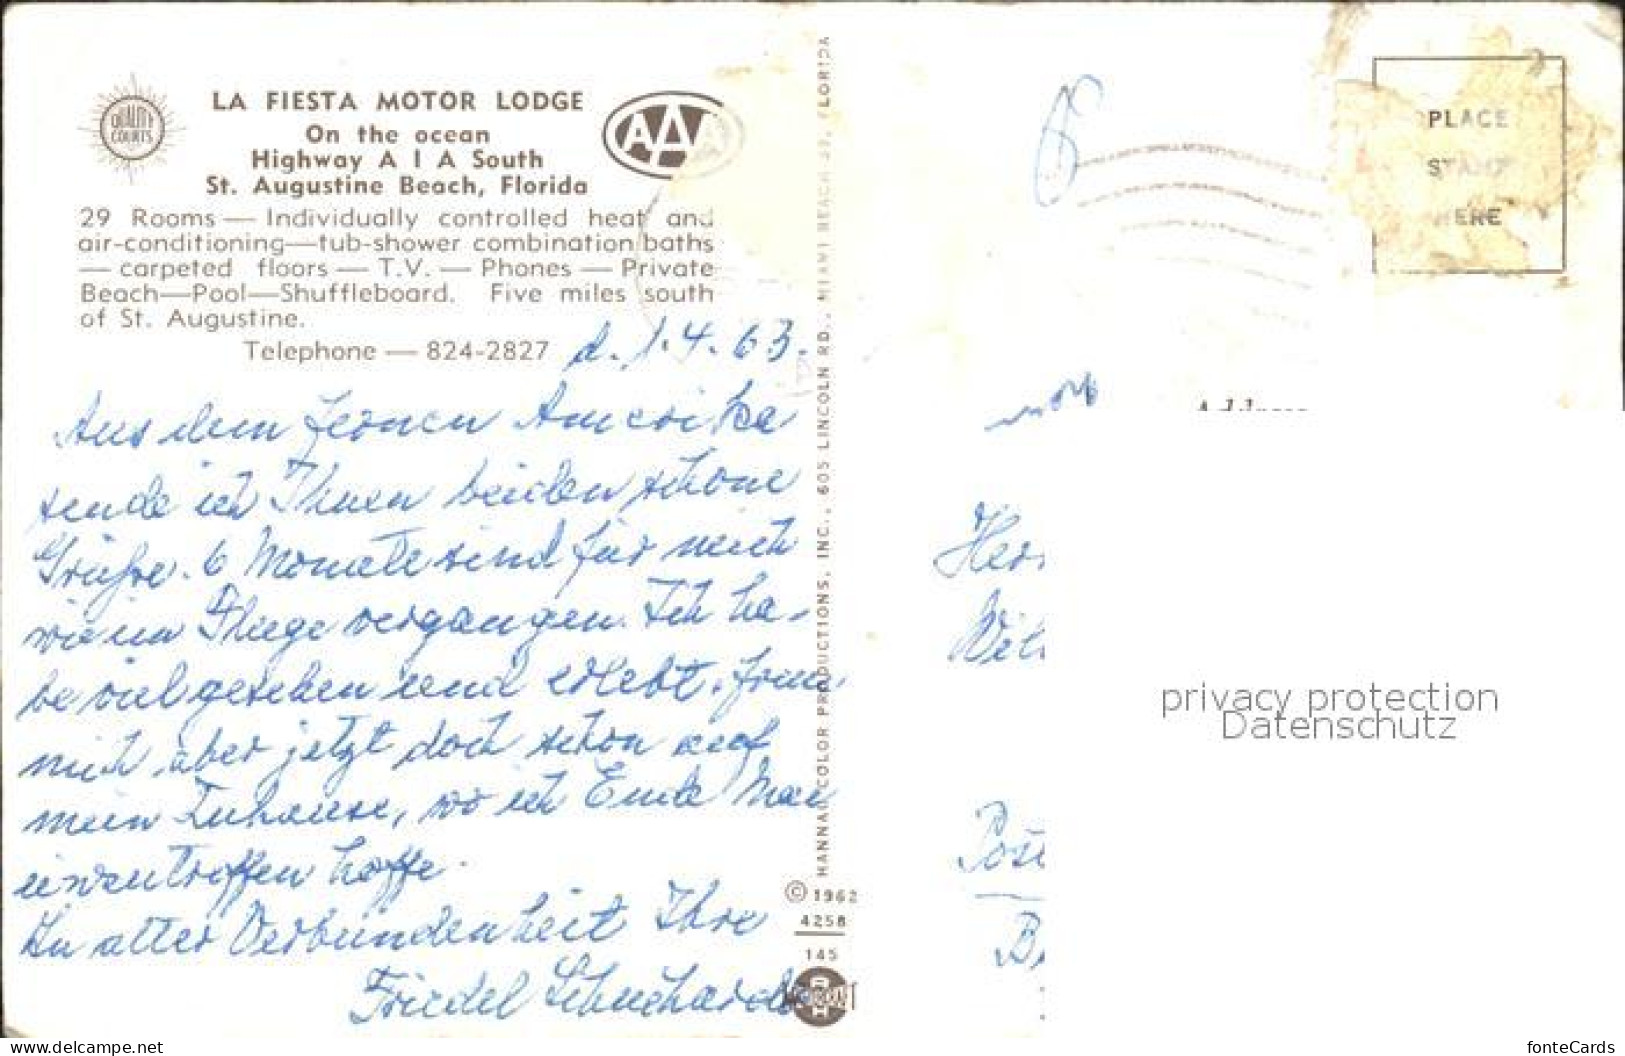 QUALITY
COURTS
LA FIESTA MOTOR LODGE
On the ocean
Highway A 1 A South
St. Augustine Beach, Florida
AAA
29 Rooms — Individually controlled heat and
air-conditioning—tub-shower combination baths
— carpeted floors — T.V. — Phones — Private
Beach—Pool—Shuffleboard. Five miles south
of St. Augustine.
Telephone — 824-2827
d. 1.4.63.
Aus dem fernen Amerika
sende ich Ihnen beiden schöne
Grüße. 6 Monate sind für mich
wie im Fluge vergangen. Ich ha-
be viel gesehen und erlebt,
mich aber jetzt doch schon auf
mein Zuhause, wo ich Ende Mai
einzutreffen hoffe.
In alter Verbundenheit Ihre
Friedel Schuchardt
HANNAU COLOR PRODUCTIONS, INC., 605 LINCOLN RD., MIAMI BEACH 39, FLORIDA
© 1962
4258
145
PLACE
STAMP
HERE
Address
Herr
Wil
Post
privacy protection
Datenschutz
www.delcampe.net
fonteCards